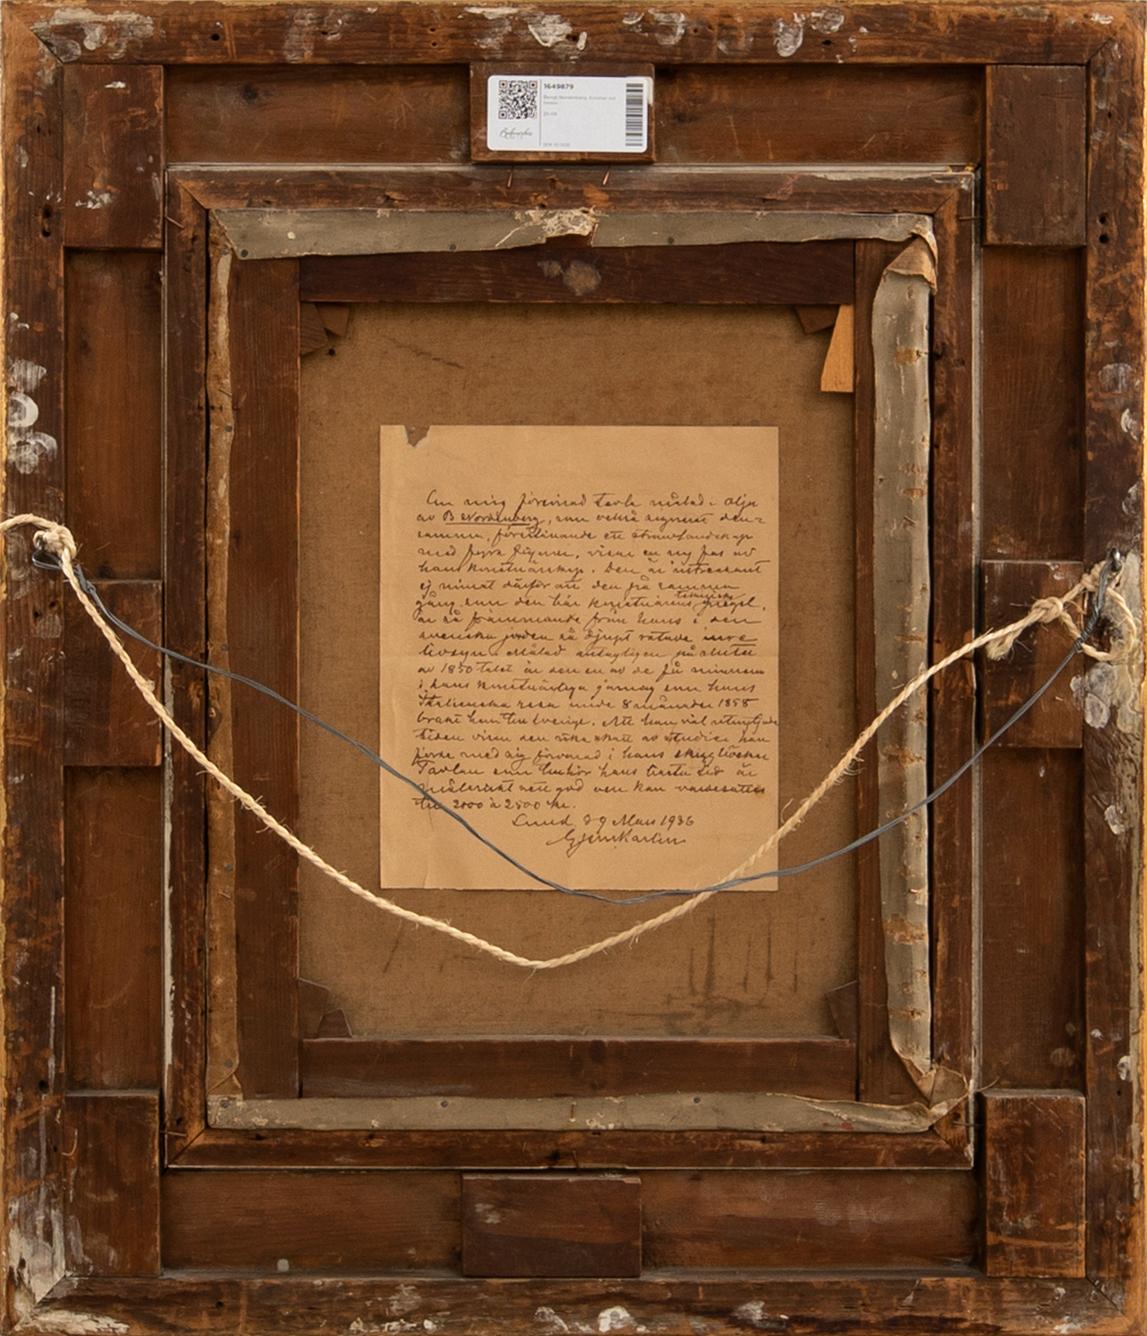 1649879
Om mig förevisad tavla målad i olja
av B Nordenberg, som också signerat den=
samma, föreställande ett strandlandskap
med fyra figurer, visar en ny fas av
hans konstnärskap. Den är intressant
ej minst därför att den på samma
gång som den bär konstnärens tekniska prägel,
är så främmande från hans i den
svenska jorden så djupt rotade inre
livssyn. Målad antagligen på slutet
av 1850 talet är den en av de få minnen
i hans konstnärliga gärning som hans
Italienska resa under 8 månader 1858
bragt hem till Sverige. Att han väl utnyttjade
tiden visar den rika skatt av studier han
förde med sig förvarad i hans skizzböcker
Tavlan som tillhör hans bästa tid är
målerisk sett god och kan värdesättas
till 2000 à 2500 kr.
Lund d 9 Mars 1936
G J:son Karlin